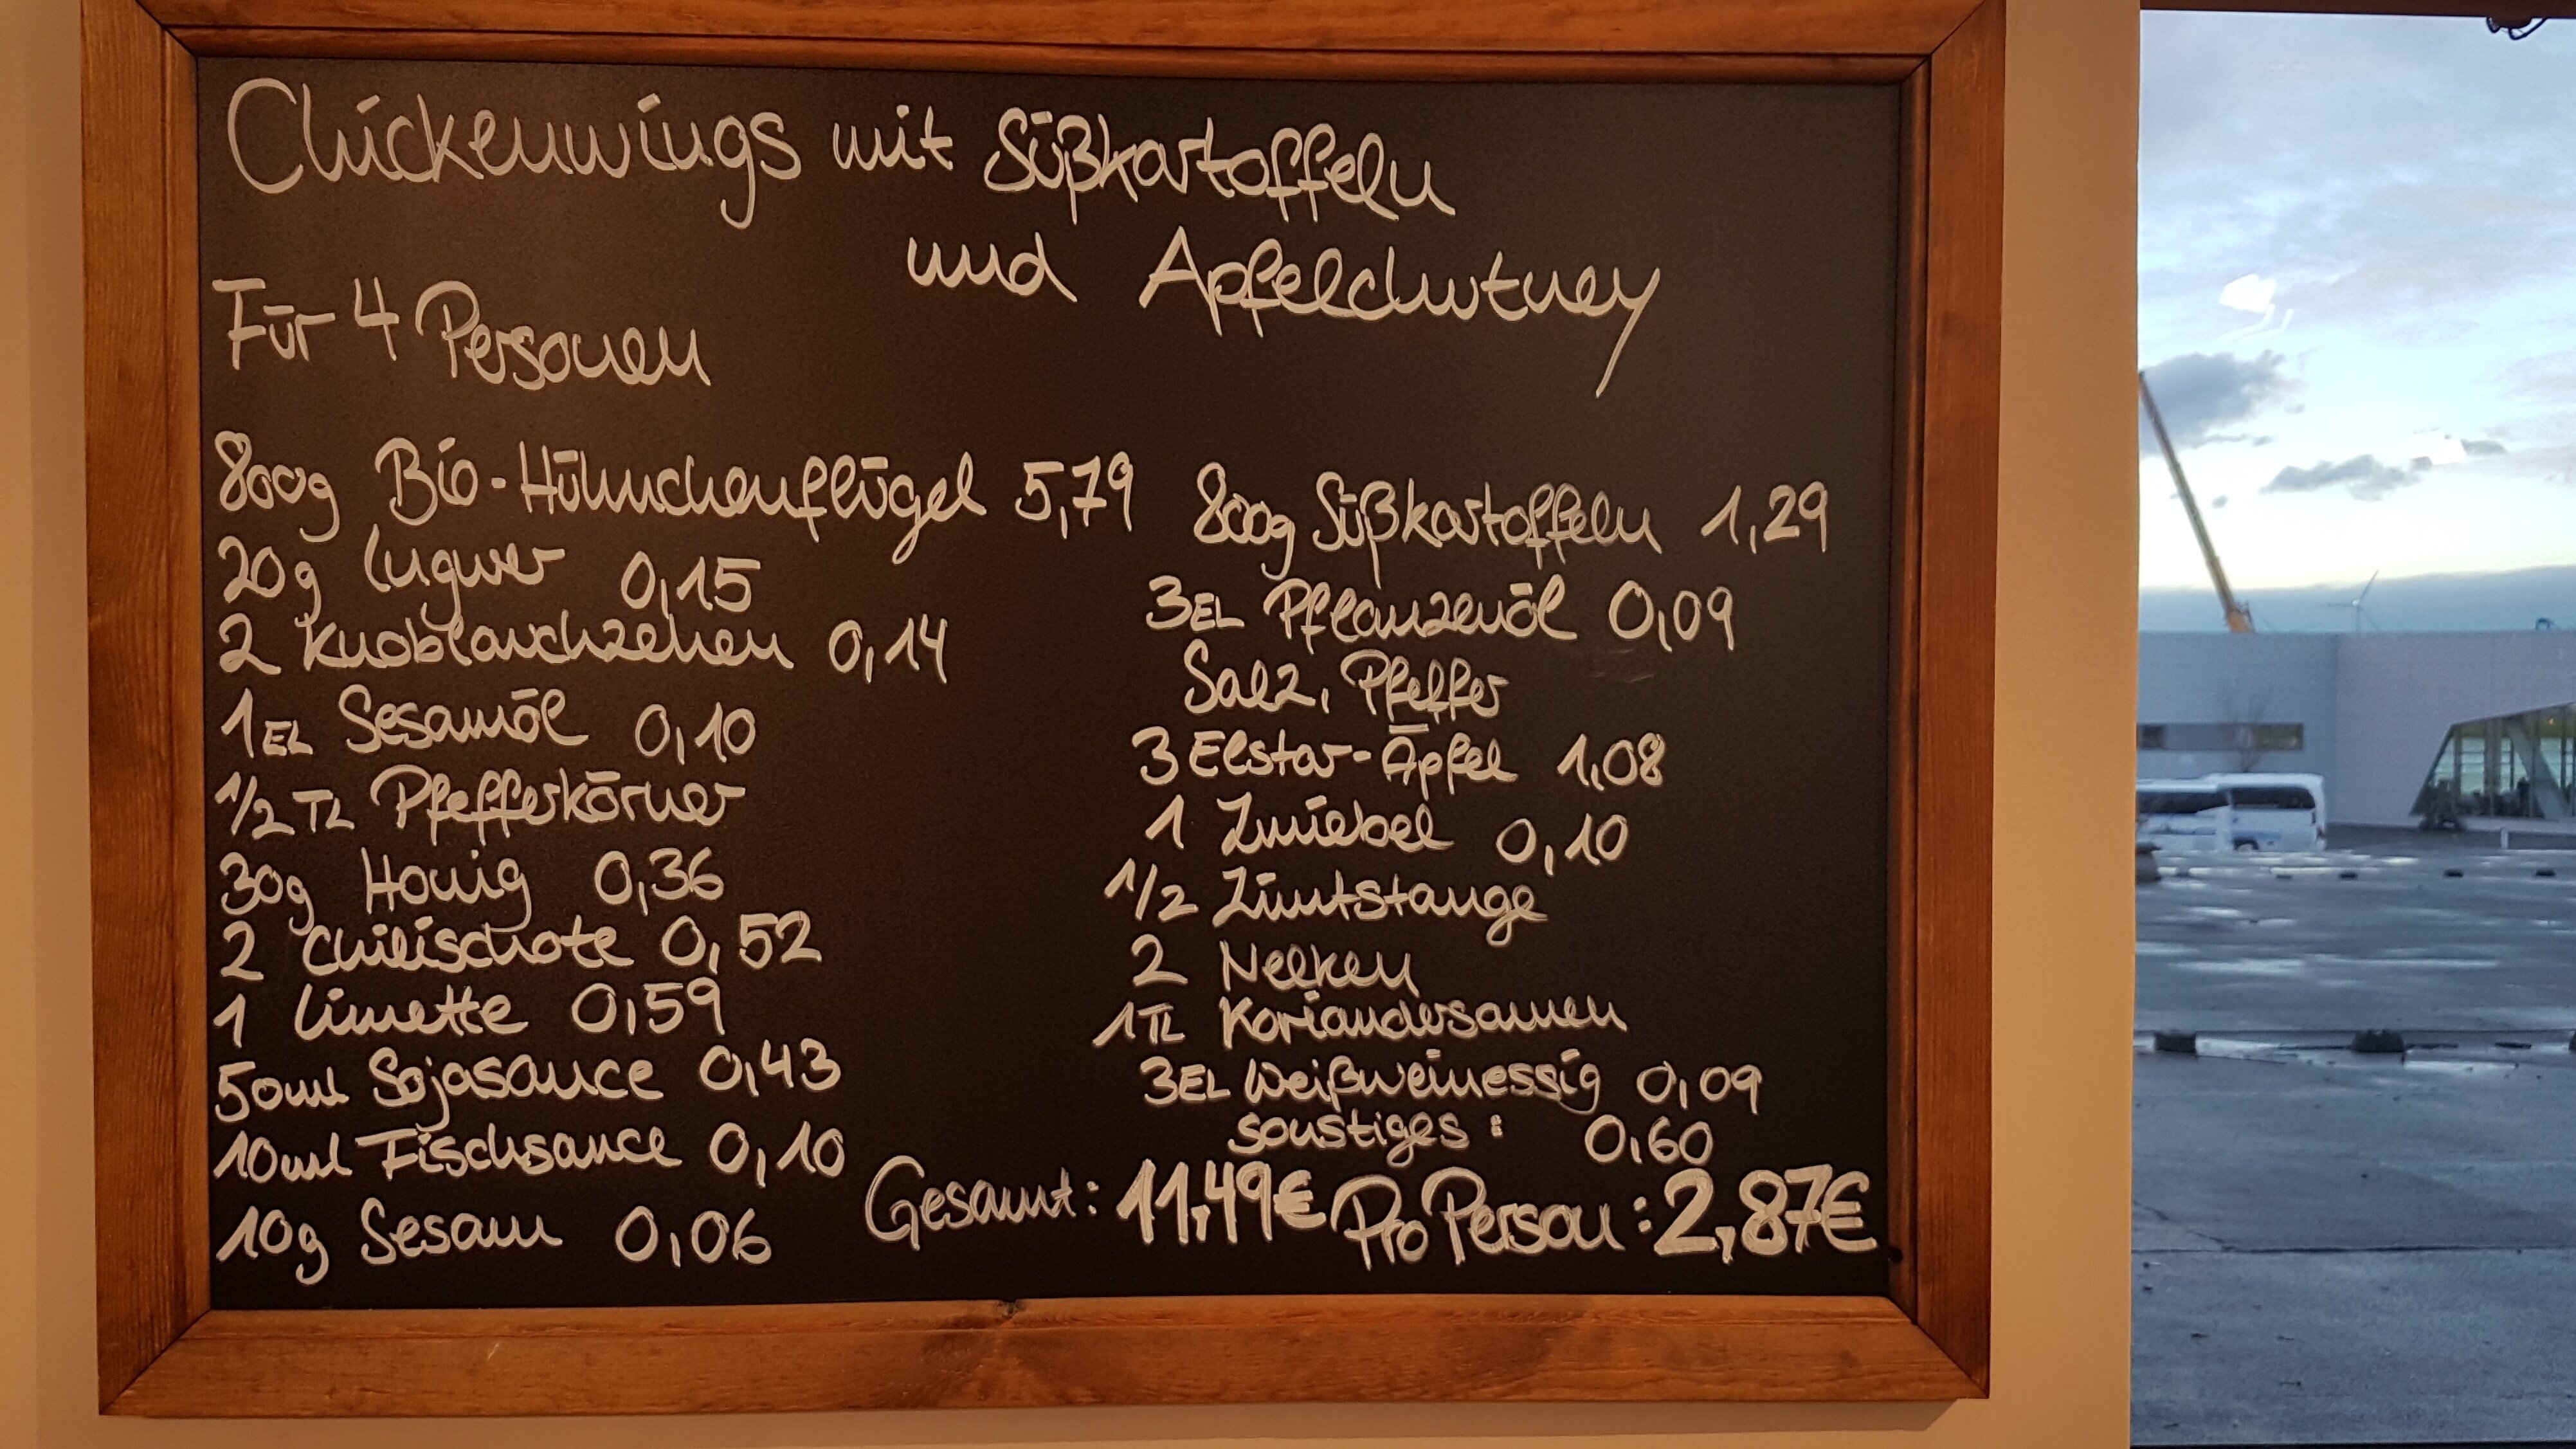 Chickenwings mit Süßkartoffeln
und Apfelchutney
Für 4 Personen
800g Bio-Hühnchenflügel 5,79
20g Ingwer 0,15
2 Knoblauchzehen 0,14
1EL Sesamöl 0,10
1/2 TL Pfefferkörner
30g Honig 0,36
2 Chilischote 0,52
1 Limette 0,59
50ml Sojasauce 0,43
10ml Fischsauce 0,10
10g Sesam 0,06
800g Süßkartoffeln 1,29
3EL Pflanzenöl 0,09
Salz, Pfeffer
3 Elstar-Äpfel 1,08
1 Zwiebel 0,10
1/2 Zimtstange
2 Nelken
1TL Koriandersamen
3EL Weißweinessig 0,09
sonstiges: 0,60
Gesamt: 11,49€ Pro Person: 2,87€